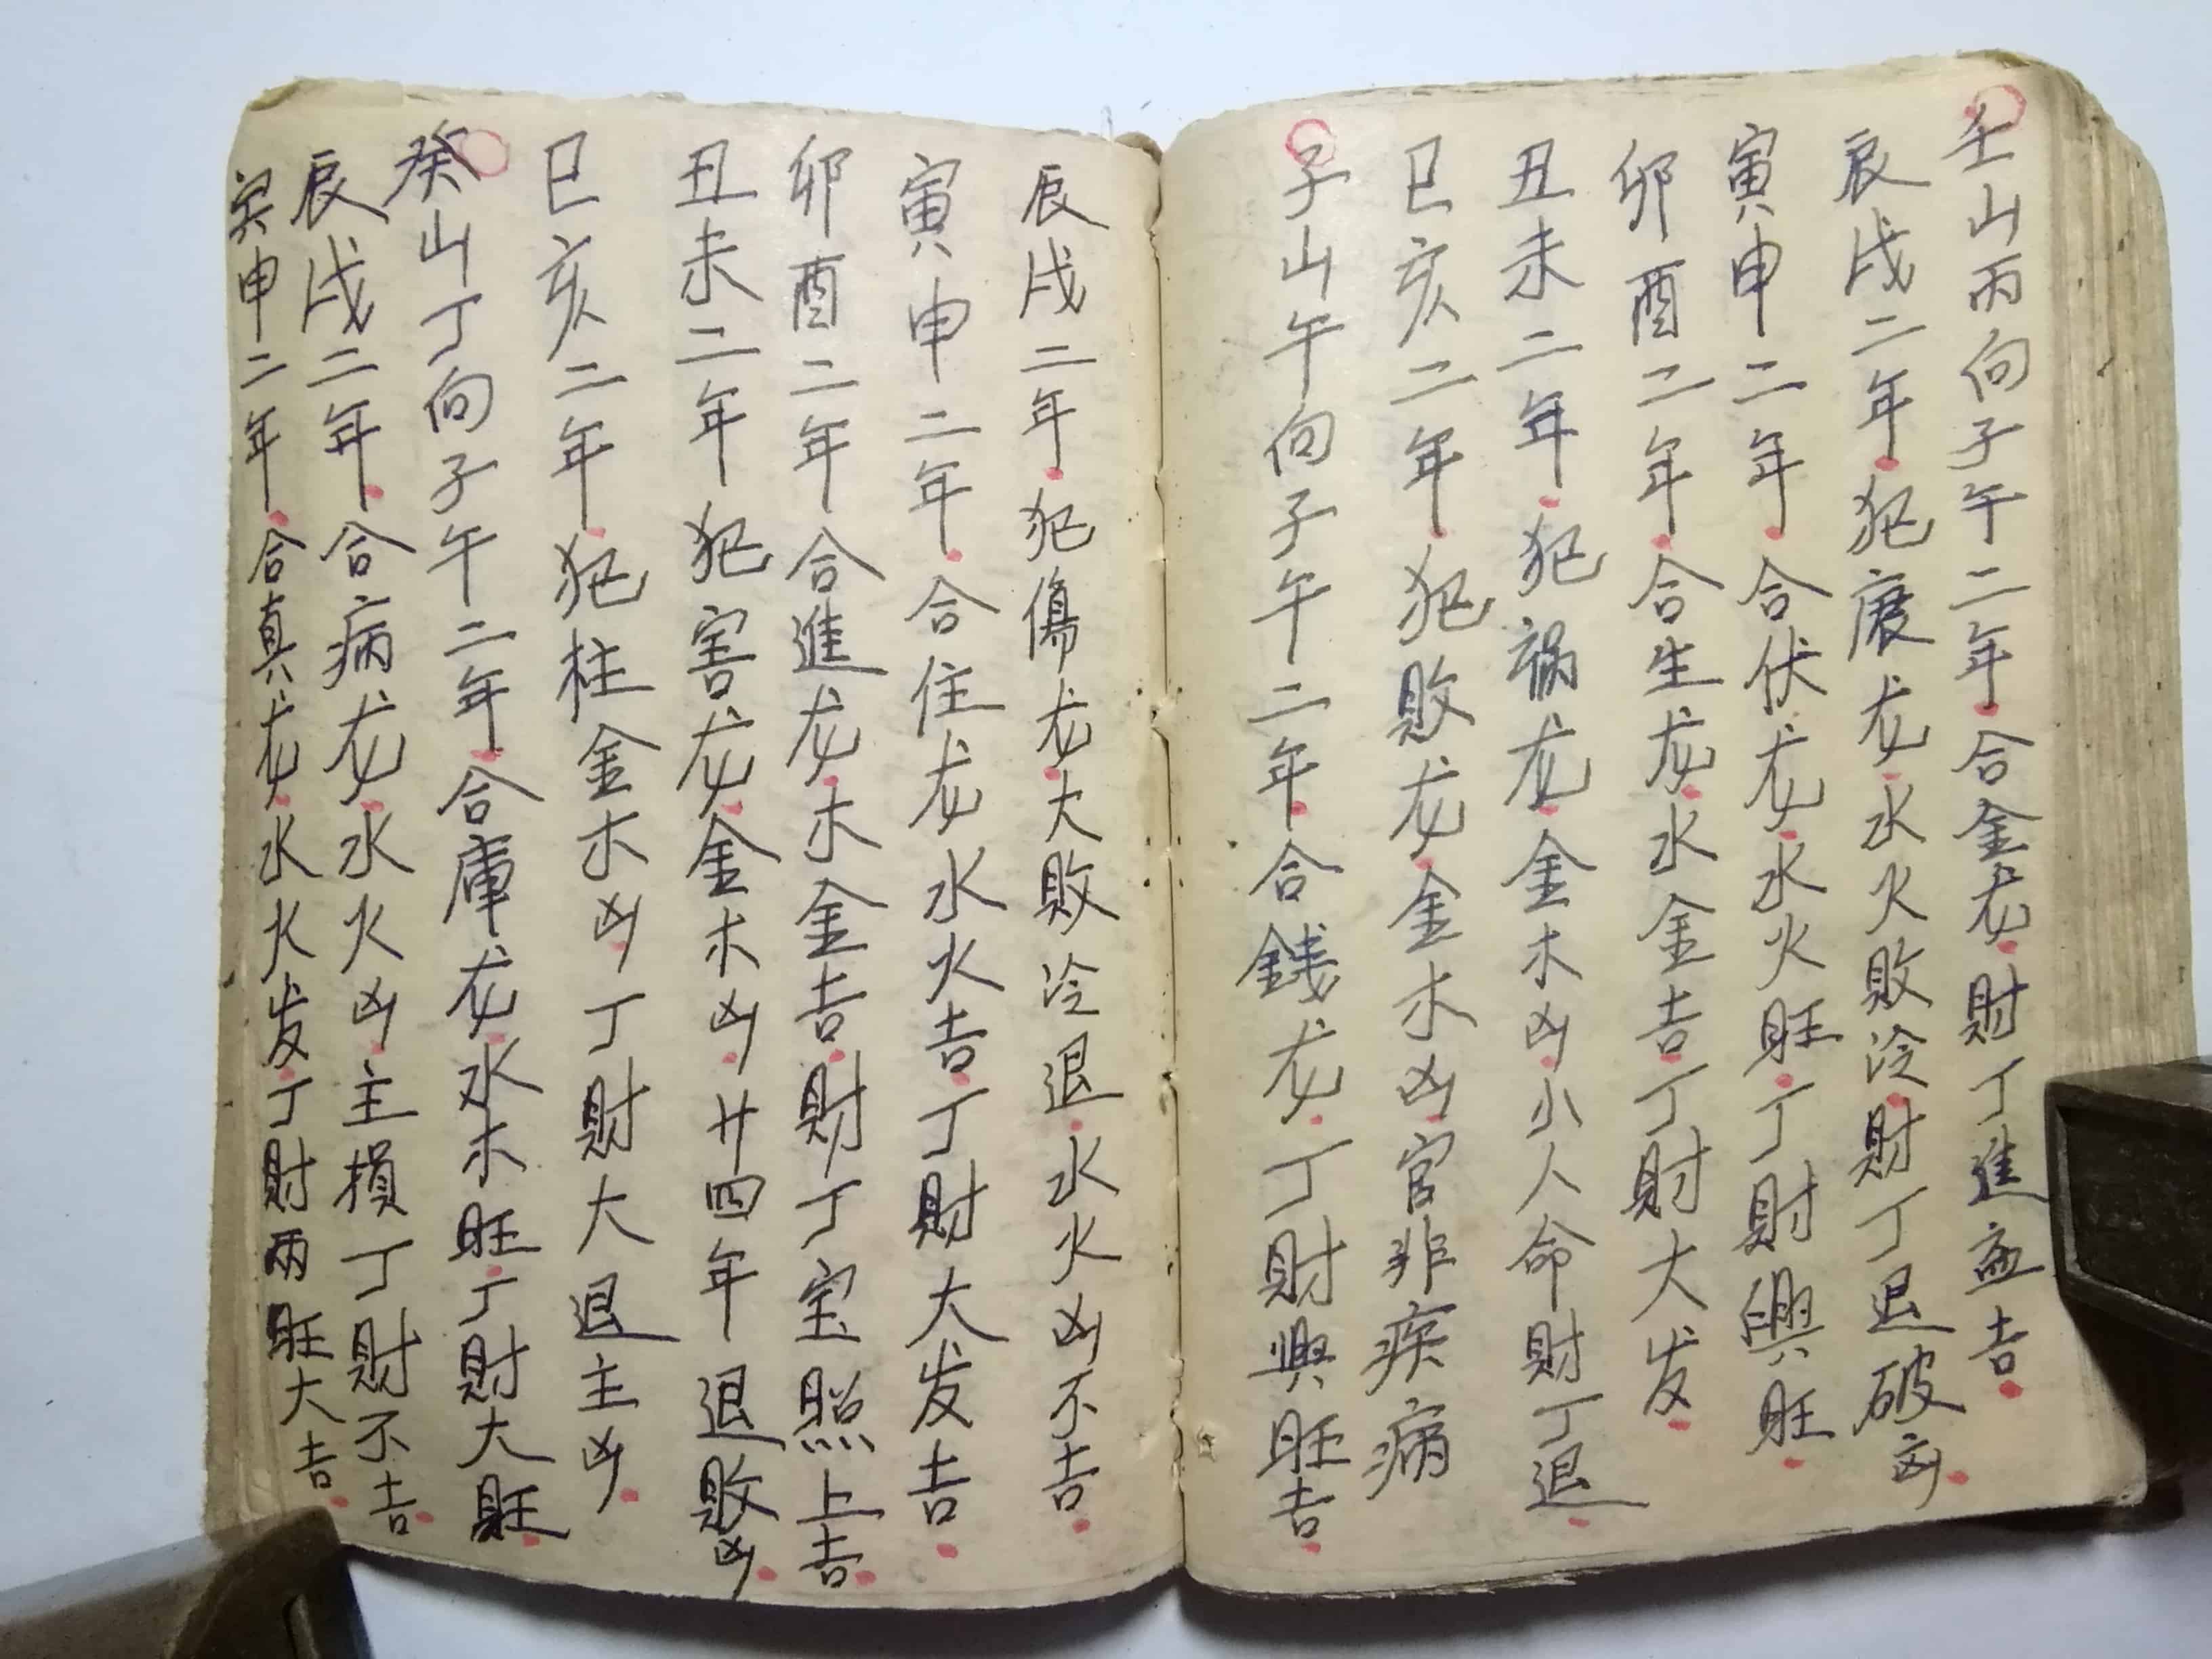 壬山丙向子午二年合金龙財丁進益吉
辰戌二年犯廢龙水火敗冷財丁退破凶
寅申二年合伏龙水火旺丁財興旺
卯酉二年合生龙水金吉丁財大发
丑未二年犯禍龙金木凶小人命財丁退
巳亥二年犯敗龙金木凶官非疾病
子山午向子午二年合銭龙丁財興旺吉
辰戌二年犯傷龙大敗冷退水火凶不吉
寅申二年合住龙水火吉丁財大发吉
卯酉二年合進龙木金吉財丁宝照上吉
丑未二年犯害龙金木凶廿四年退敗凶
巳亥二年犯柱金木凶丁財大退主凶
癸山丁向子午二年合庫龙水木旺丁財大旺
辰戌二年合病龙水火凶主損丁財不吉
寅申二年合真龙水火发丁財两旺大吉